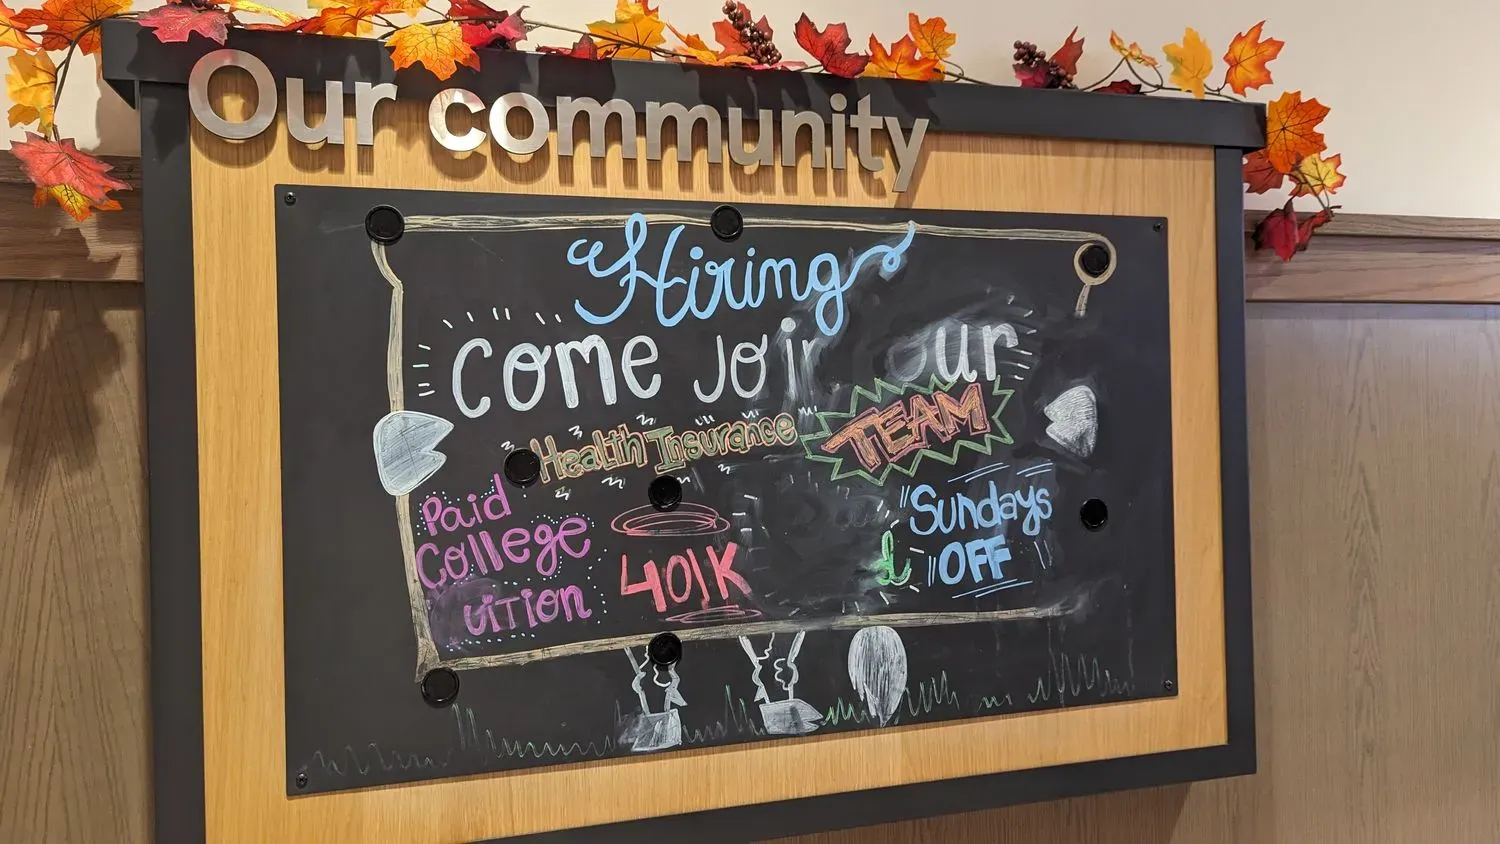 Our community
Hiring
Come Join our
TEAM
Health Insurance
Paid
College
uition
401K
Sundays
OFF